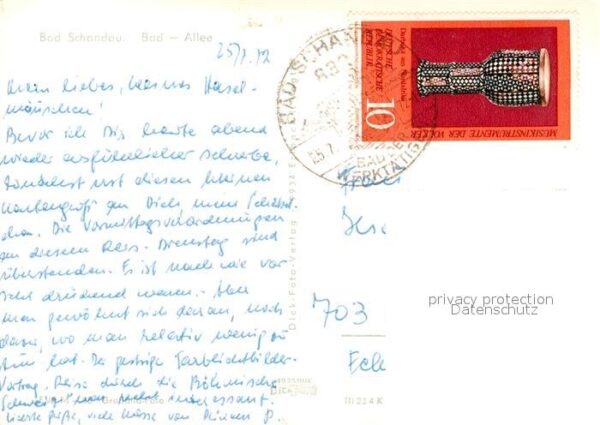 Bad Schandau. Bad – Allee
25/7.72
Mein liebes, kleines Hasel-
mäuschen!
Bevor ich Dir heute abend
wieder ausführlicher schreibe,
zunächst erst diesen kleinen
Kartengruß an Dich, mein Schätz-
chen. Die Vormittagsverordnungen
an diesem Dienstag sind
überstanden. Es ist nach wie vor
sehr drückend warm. Aber
man gewöhnt sich daran, noch
dazu, wo man relativ wenig zu
tun hat. Der gestrige Farblichtbilder-
Vortrag „Reise durch die Böhmische
Schweiz" war recht interessant.
Liebste Grüße, viele Küsse von Deinem P.
BAD SCHANDAU
832
25.7.
BAD DER
WERKTÄTIGEN
DEUTSCHE
DEMOKRATISCHE
REPUBLIK
10
MUSIKINSTRUMENTE DER VÖLKER
Dick-Foto-Verlag
703
privacy protection
Datenschutz
III 23 4 K